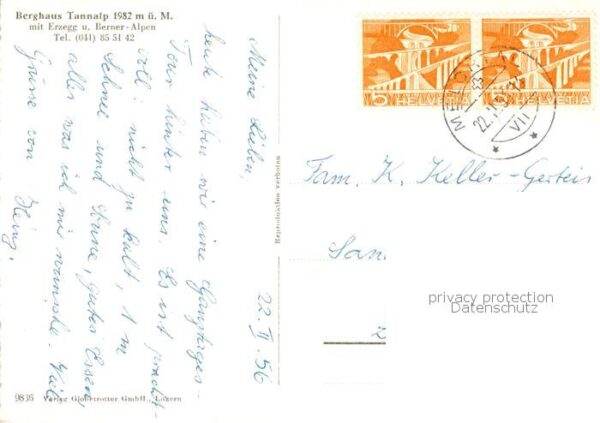 Berghaus Tannalp 1982 m ü. M.
mit Erzegg u. Berner-Alpen
Tel. (041) 85 51 42
22. II. 56
Meine Lieben,
heute haben wir eine Ganztages-
Tour hinter uns. Es ist pracht-
voll: nicht zu kalt, 1 m
Schnee und Sonne, gutes Essen,
alles was ich mir wünsche. Viele
Grüsse von
Heinz.
Reproduktion verboten
5 HELVETIA
5 HELVETIA
22. II. 56
VII
Fam. K. Keller-Gerteis
San
privacy protection
Datenschutz
9835 Verlag Globetrotter GmbH., Luzern